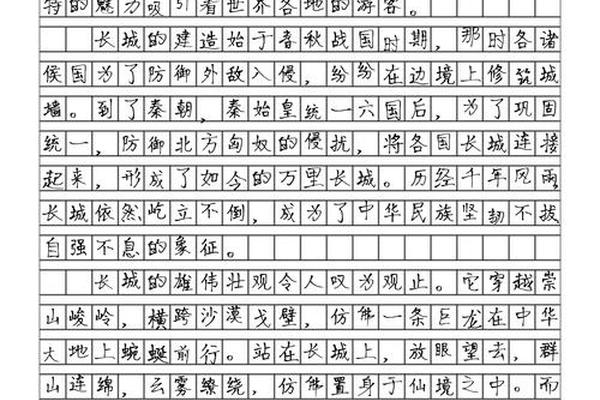 特的魅力吸引着世界各地的游客。
长城的建造始于春秋战国时期，那时各诸
侯国为了防御外敌入侵，纷纷在边境上修筑城
墙。到了秦朝，秦始皇统一六国后，为了巩固
统一，防御北方匈奴的侵扰，将各国长城连接
起来，形成了如今的万里长城。历经千年风雨
长城依然屹立不倒，成为了中华民族坚韧不拔
自强不息的象征。
长城的雄伟壮观令人叹为观止。它穿越崇
山峻岭，横跨沙漠戈壁，仿佛一条巨龙在中华
大地上蜿蜒前行。站在长城上，放眼望去，群
山连绵，云雾缭绕，仿佛置身于仙境之中。而